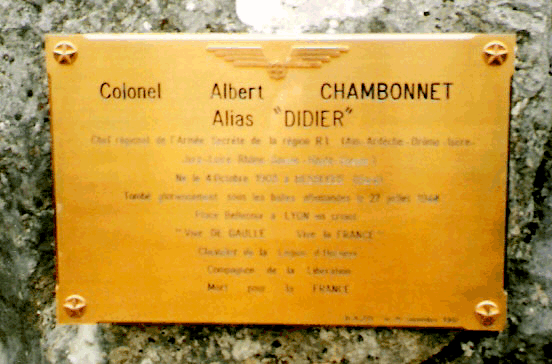 Colonel Albert CHAMBONNET
Alias "DIDIER"
Chef régional de l'Armée Secrète de la région R.I. (Ain-Ardèche-Drôme-Isère-
Jura-Loire Rhône
Né le 4 Octobre 1903 à
Tombé glorieusement sous les balles allemandes le 27 juillet 1944
Place Bellecour à LYON en criant
"Vive DE GAULLE Vive la FRANCE"
Chevalier de la Légion d'Honneur
Compagnon de la Libération
Mort pour la FRANCE